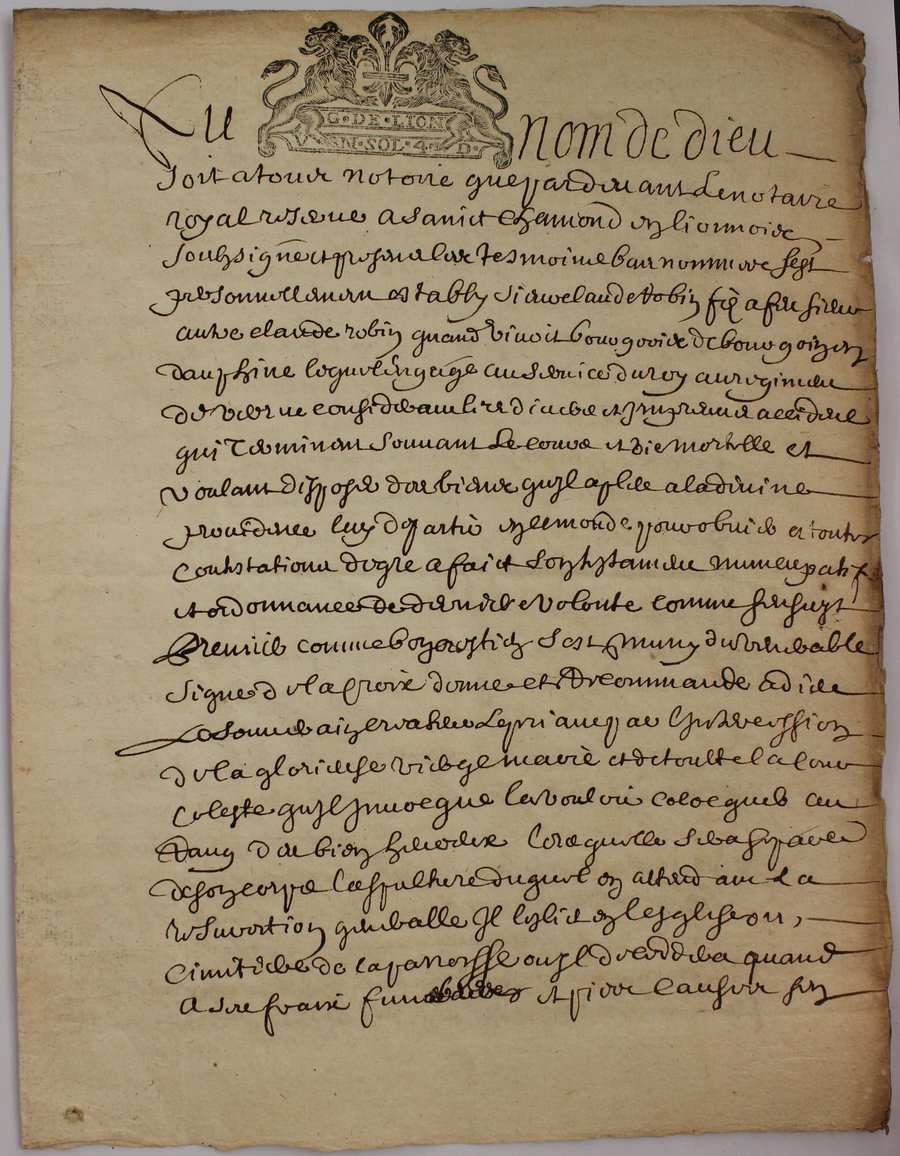 Au
G · DE · LION
AN · SOL · 4 · D ·
nom de dieu
soit a tous notoire que pardevant le notaire
royal reserve a sainct chamond en lionnois
soubsigne et presens les tesmoins bas nommes fust
personnellement estably sieur claude Robin fils a feu sieur
autre claude robin quand vivoit bourgeois de bourgoin en
dauphine lequel engage au service du roy au regiment
de considerant les divers et impreveus accidens
qui terminent souvant le cours et vie mortelle et
voulant disposer des biens quil a pleu a la divine
providence luy departir en ce monde pour obvier a toutes
contestations de gre a faict son testament nuncupatif
et ordonnance de derniere volonte comme sensuyt
Premier comme bon crestien sest muny du venerable
signe de la croix donne et Recommande a dieu
le priant par lintercession
de la glorieuse vierge marie et de toutte la cour
celeste quil invocque la vouloir colocquer au
Rang des bien heureux lorsquelle sera separee
de son corps la sepulture duquel en attendant la
resurection generalle Il eslit en lesglise ou
cimitiere de la parroisse ou il decedera quand
a ses fraix et pies laissees sen